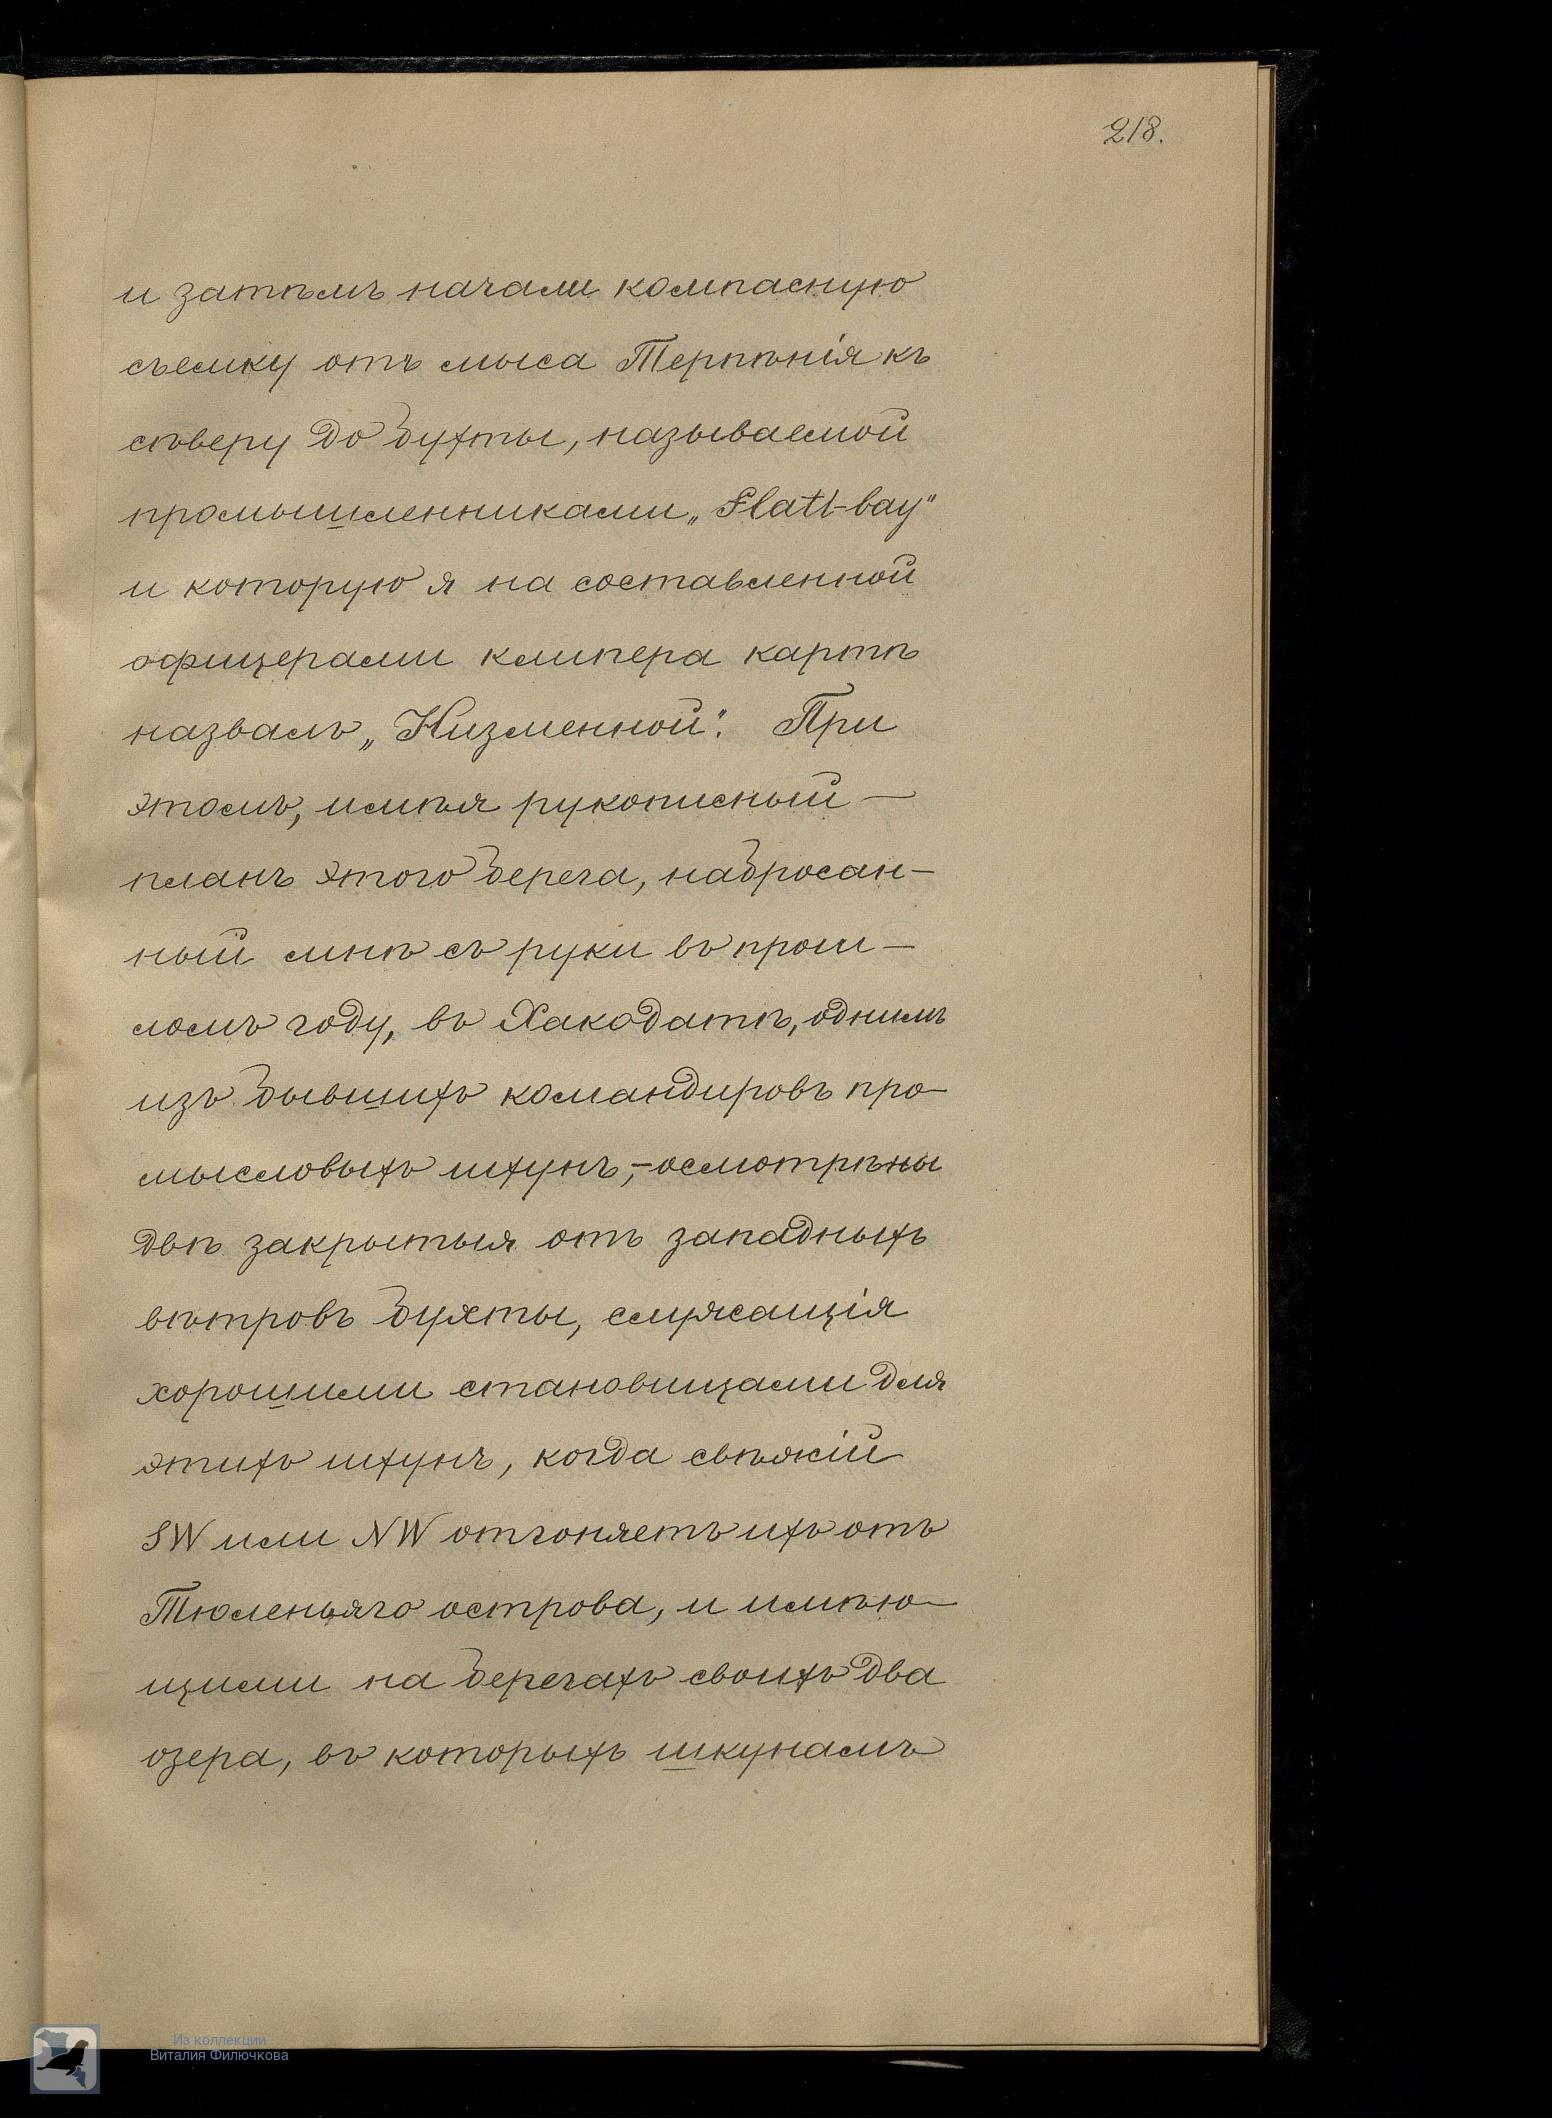 218.
и затѣмъ начали компасную
съемку отъ мыса Терпѣнія къ
сѣверу до бухты, называемой
промышленниками „Flatt-bay"
и которую я на составленной
офицерами клипера картѣ
назвалъ „Низменной". При
этомъ, имѣя рукописный —
планъ этого берега, набросан-
ный мнѣ съ руки въ прош-
ломъ году, въ Хакодатѣ, однимъ
изъ бывшихъ командировъ про-
мысловыхъ шхунъ,- осмотрѣны
двѣ закрытыя отъ западныхъ
вѣтровъ бухты, служащія
хорошими становищами для
этихъ шхунъ, когда свѣжій
SW или NW отгоняетъ ихъ отъ
Тюленьяго острова, и имѣю-
щими на берегахъ своихъ два
озера, въ которыхъ шкунамъ
Из коллекции
Виталия Филючкова